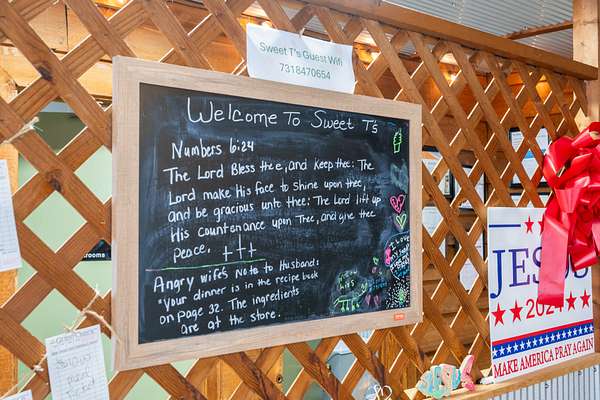 Sweet T's Guest Wifi
7318470654
Welcome To Sweet T's
Numbers 6:24
The Lord Bless thee, and keep thee: The
Lord make His face to shine upon thee,
and be gracious unto thee: The Lord lift up
His countenance upon Thee, and give thee
peace.
Angry wife's Note to Husband:
"Your dinner is in the recipe book
on page 32. The ingredients
are at the store.
I love
rooms
JESUS
2024
MAKE AMERICA PRAY AGAIN